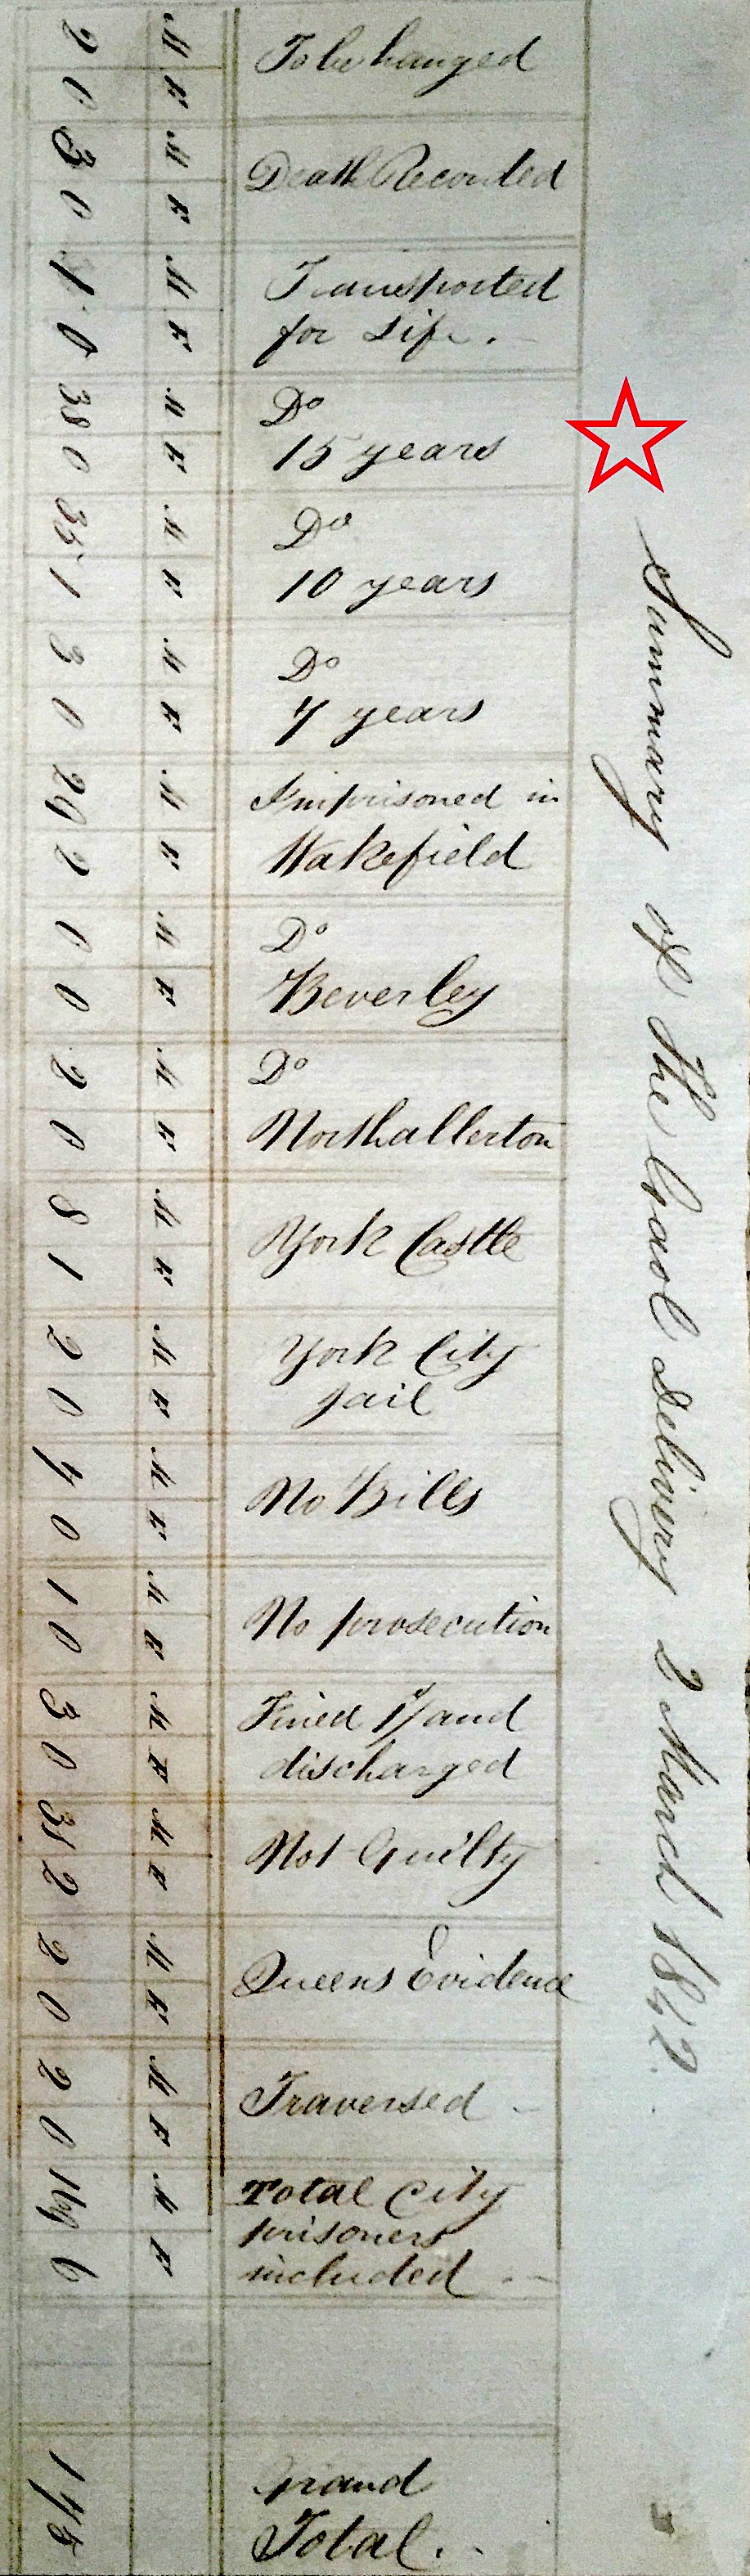 Summary of the Gaol Delivery 2 March 1842
To be hanged
M F
2 0
Death Recorded
M F
3 0
Transported
for Life.
M F
1 0
Do
15 years
M F
38 0
Do
10 years
M F
35 1
Do
7 years
M F
3 0
Imprisoned in
Wakefield
M F
29 2
Do
Beverley
M F
0 0
Do
Northallerton
M F
2 0
York Castle
M F
8 1
York City
Jail
M F
2 0
No Bills
M F
7 0
No prosecution
M F
1 0
Fined 1/ and
discharged
M F
3 0
Not Guilty
M F
31 2
Queens Evidence
M F
2 0
Traversed –
M F
2 0
Total City
prisoners
included –
M F
169 6
Grand
Total.
175